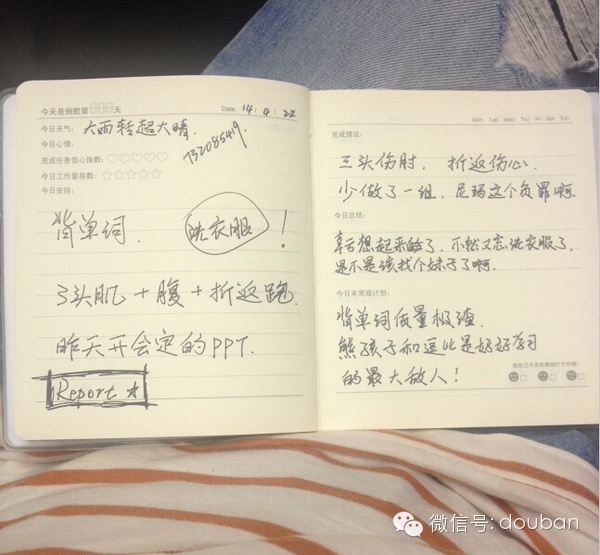 今天是倒数第 天
Date: 14 . 4 . 22
今日天气: 大雨转超大晴.
今日心情:
732085419.
完成任务信心指数:
今日工作量指数:
今日安排:
背单词. 洗衣服!
3头肌+腹+折返跑.
昨天开会定的PPT.
Report
Mon Tue Wed Thu Fri Sat Sun
完成情况:
三头伤肘, 折返伤心.
少做了一组, 尼玛这个负罪啊.
今日总结:
幸亏想起来的了, 不然又忘洗衣服了,
是不是该找个妹子了啊.
今日未完成计划:
背单词质量极渣.
熊孩子和逗比是好好学习
的最大敌人!
微信号: douban